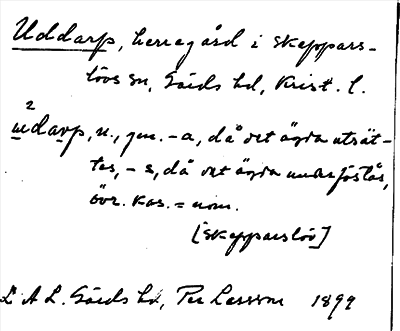 Uddarp, herregård i Skeppars-
lövs sn, Gärds hd, Krist. l.
2
udarp, n., gen. -a, då det ägda utsät-
tes, -s, då det ägda underförstås,
övr. kas. = nom.
[Skepparslöv]
L A L. Gärds hd, Per Larsson 1899